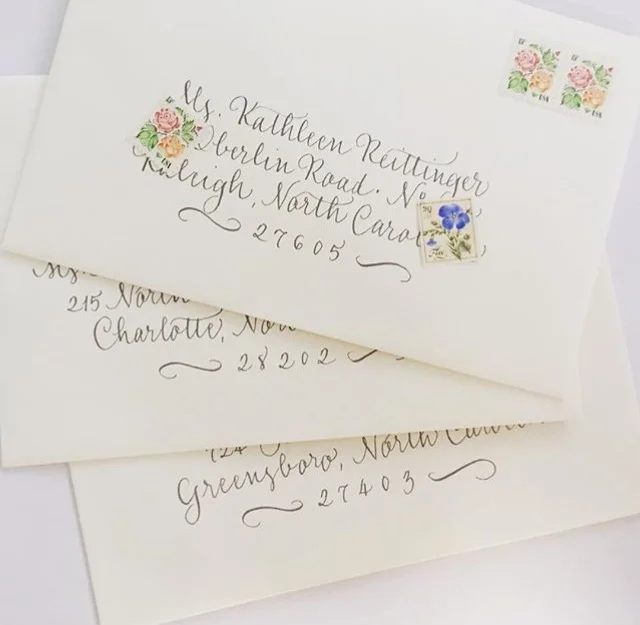 Ms. Kathleen Reittinger
Oberlin Road. No
Raleigh, North Caro
27605
Ms.
215 North
Charlotte, Nor
28202
724
Greensboro, North Carol
27403